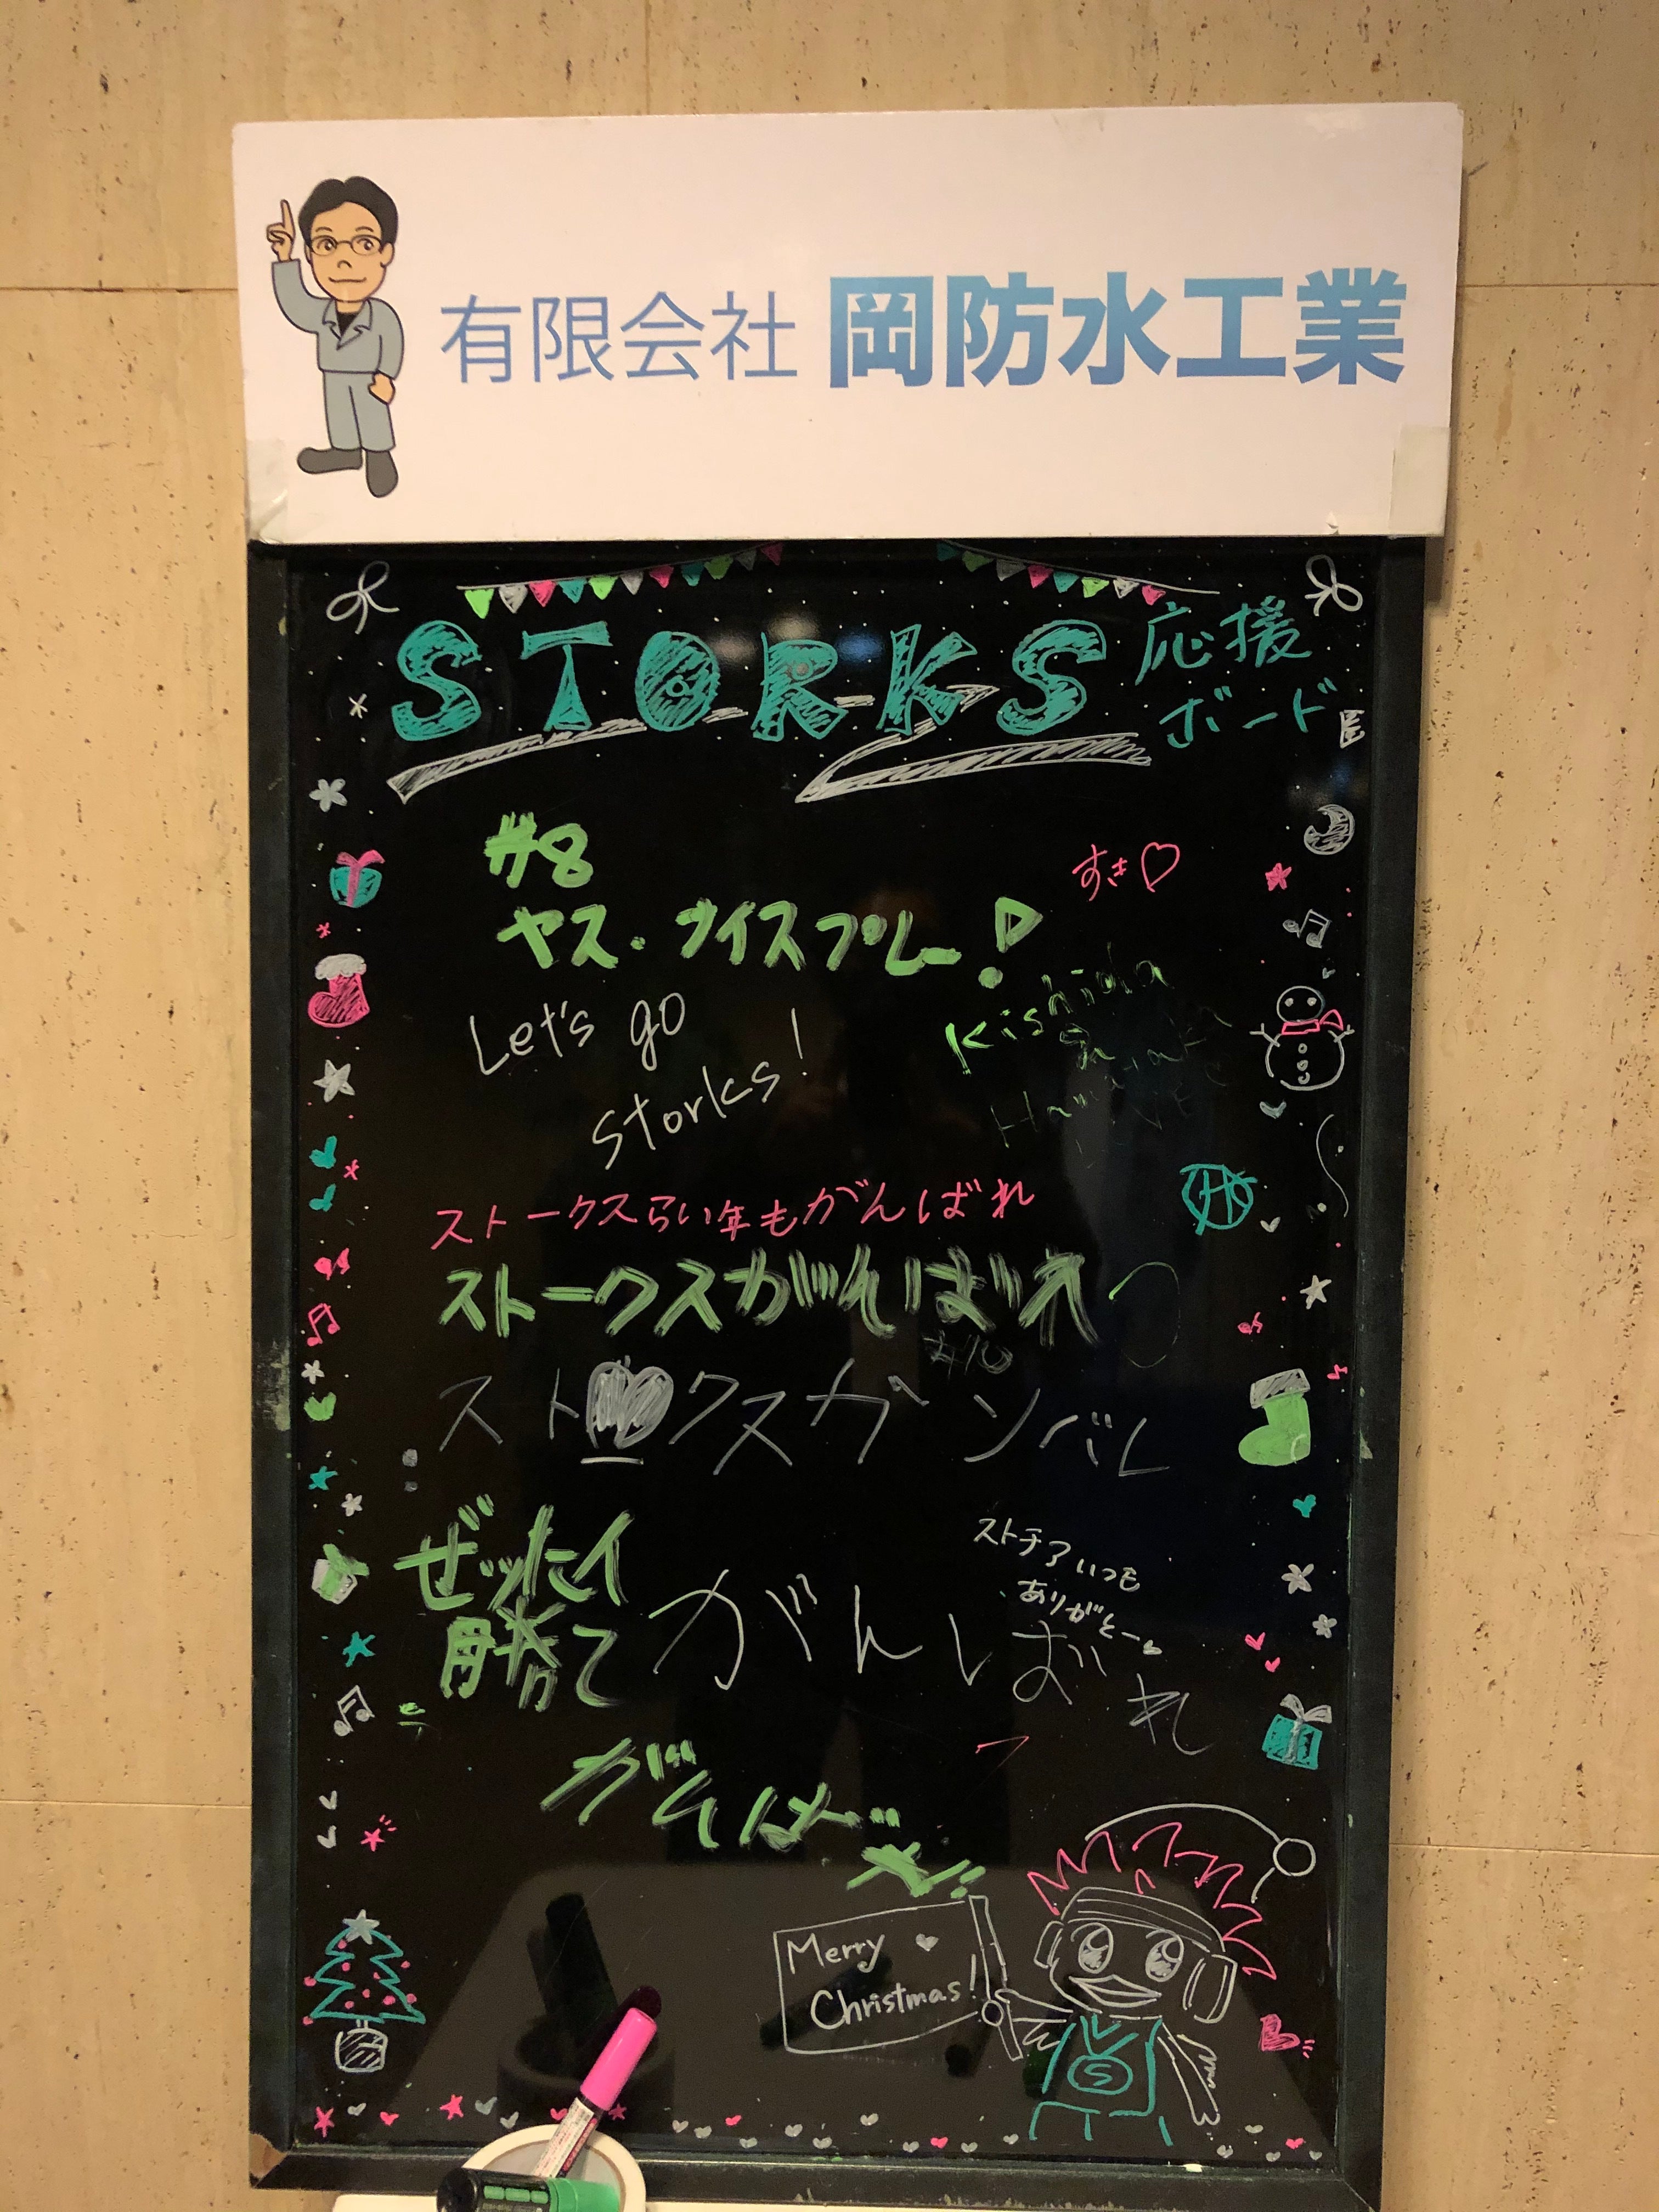 有限会社 岡防水工業
STORKS 応援
ボード
#8
すき♡
ヤス.ナイスプレー!
Let's go
Storks!
Kishida
ストークスらい年もがんばれ
ストークスがんばれ
#10
スト♥クスガンバレ
ぜッたイ
勝て
ストチアいつも
ありがとー。
がんばれ
がんばれ!
Merry
Christmas!
S